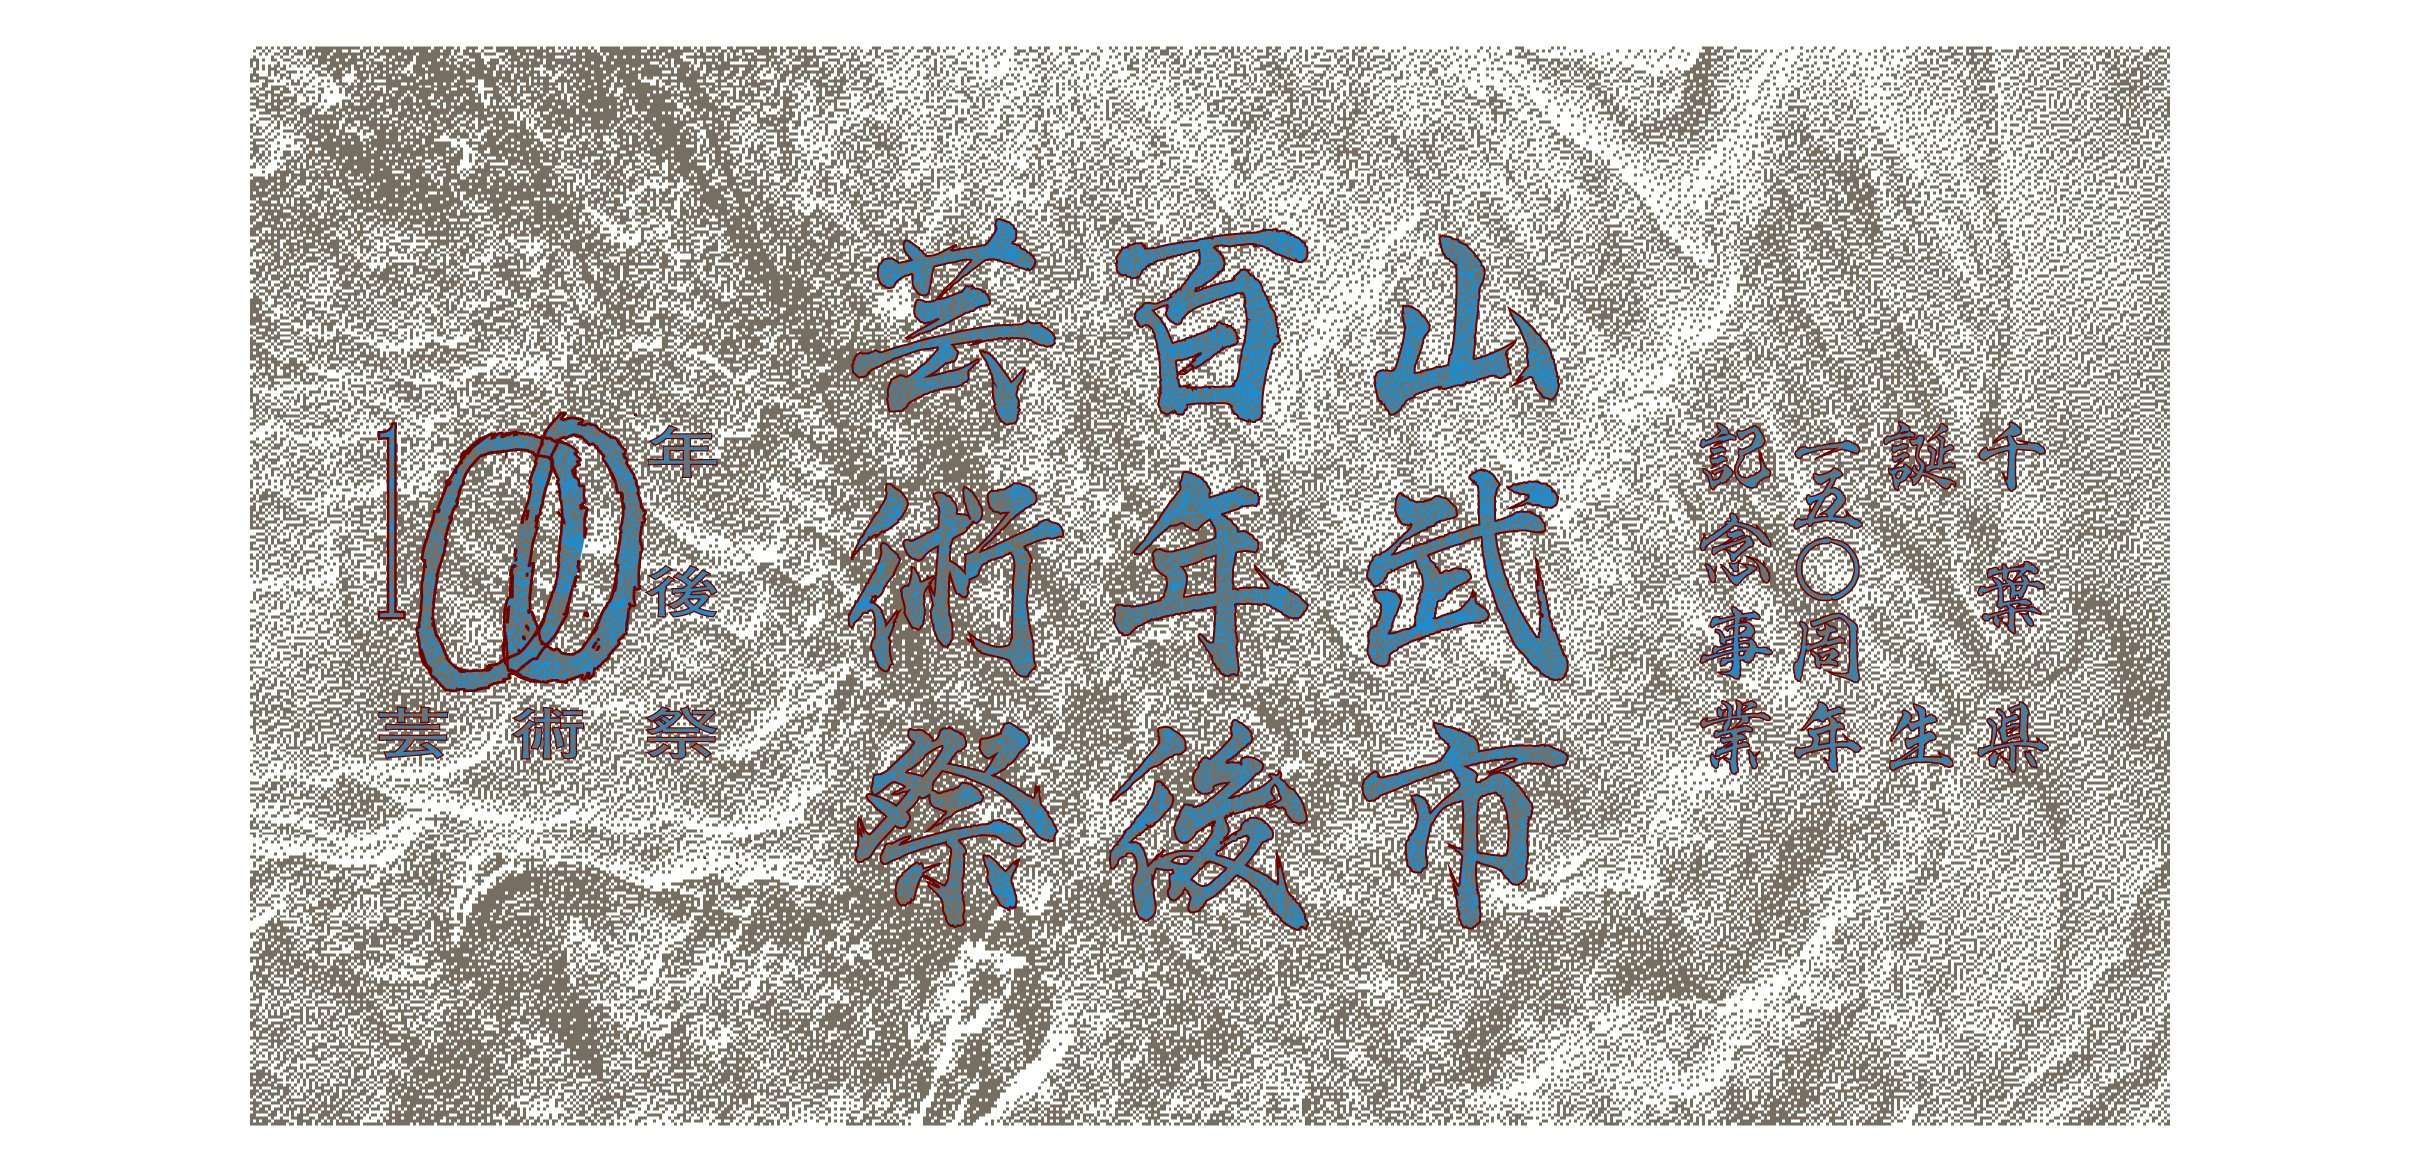 千葉県
誕生
一五〇周年
記念事業
山武市
百年後
芸術祭
100年後
芸術祭